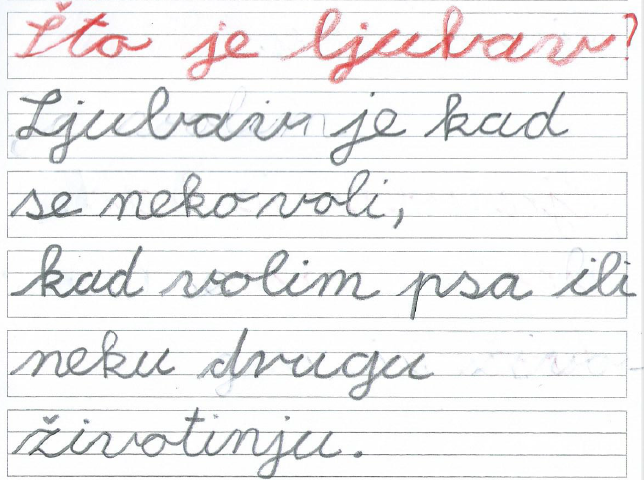 Što je ljubav?
Ljubav je kad
se neko voli,
kad volim psa ili
neku drugu
životinju.